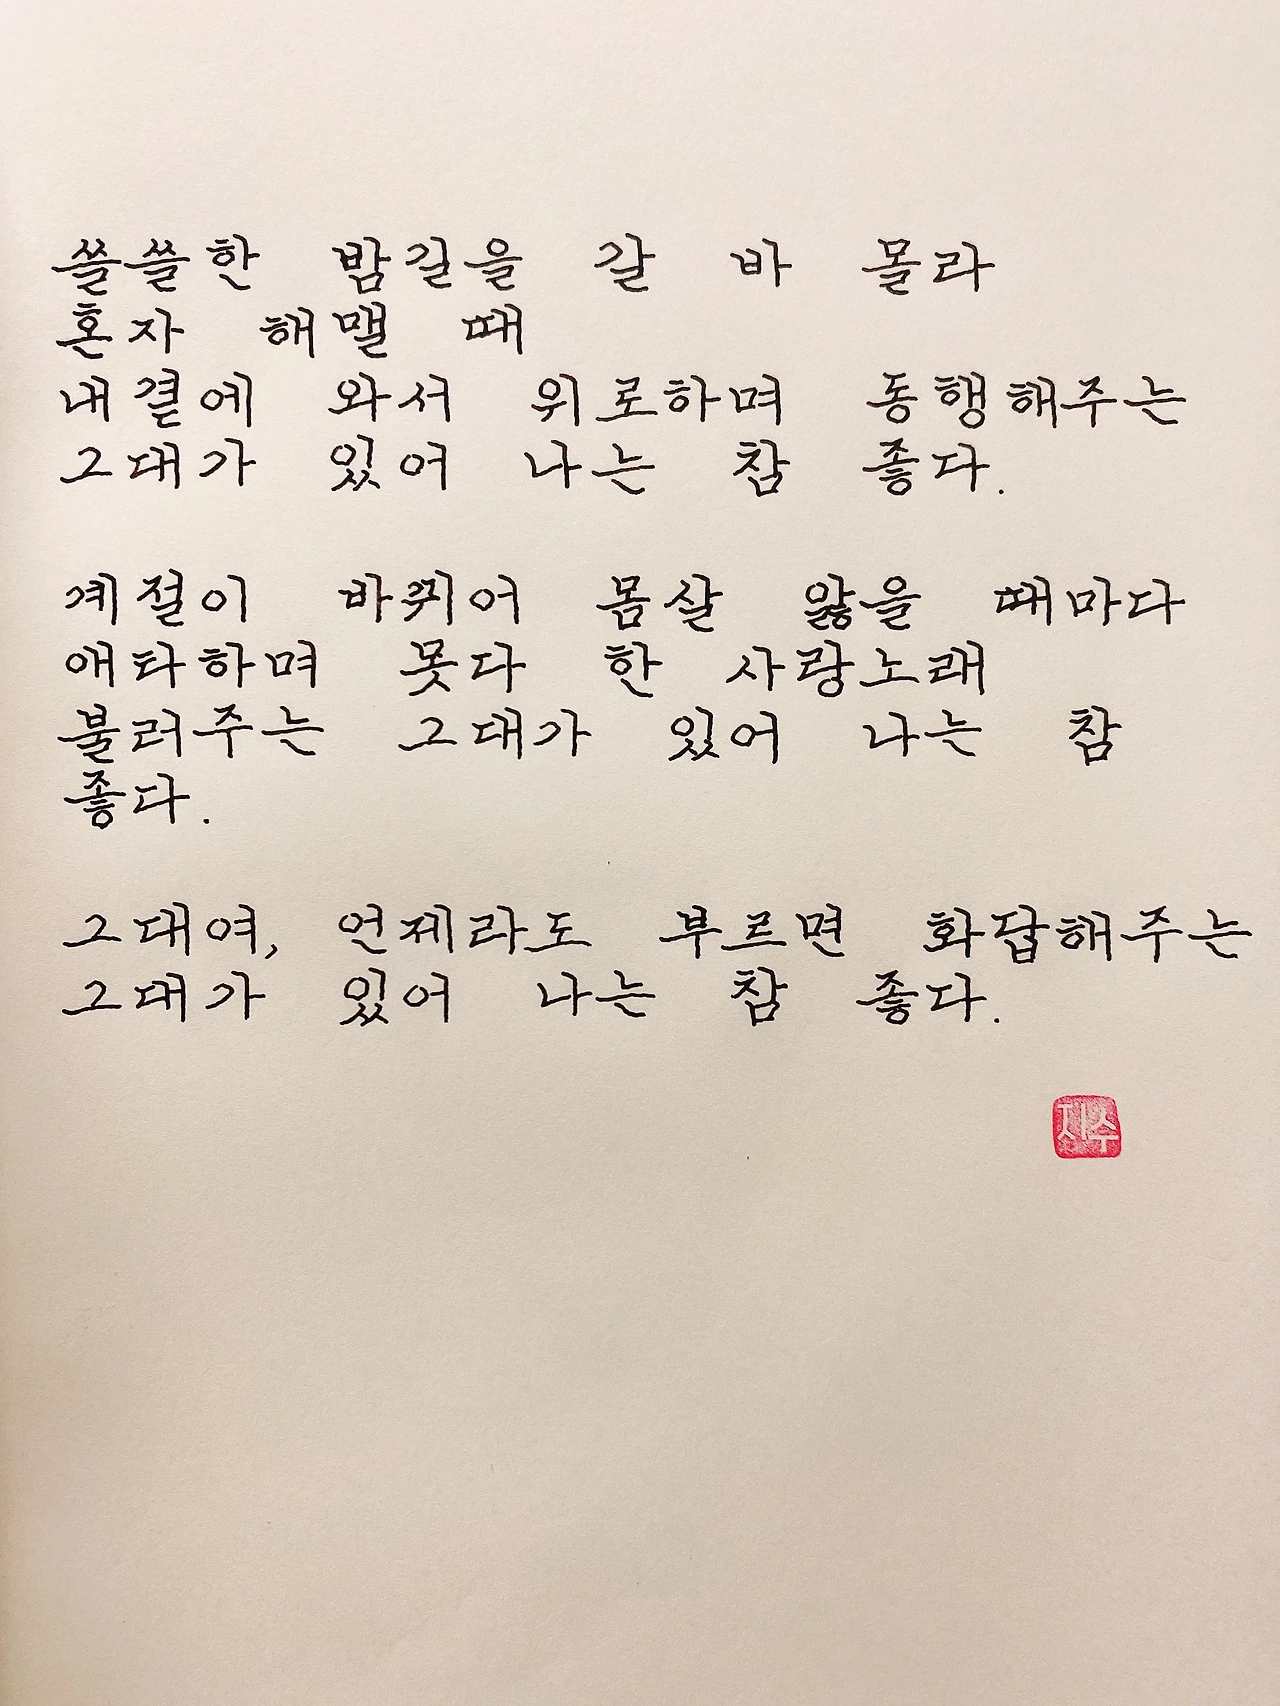 쓸쓸한 밤길을 갈 바 몰라
혼자 해맬 때
내곁에 와서 위로하며 동행해주는
그대가 있어 나는 참 좋다.
계절이 바뀌어 몸살 앓을 때마다
애타하며 못다 한 사랑노래
불러주는 그대가 있어 나는 참
좋다.
그대여, 언제라도 부르면 화답해주는
그대가 있어 나는 참 좋다.
지수